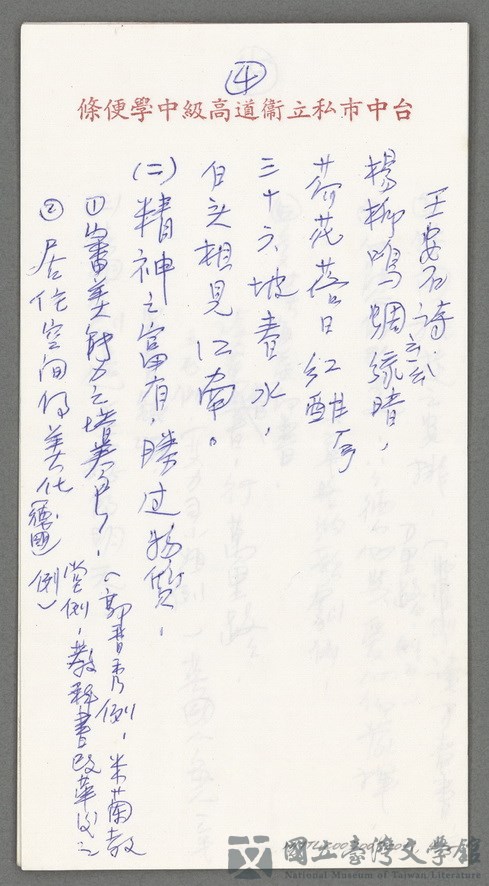 ④
台中市私立衛道高級中學便條
王安石詩
楊柳鳴蜩綠暗，
荷花落日紅酣，
三十六坡春水，
白头想見江南。
(二)精神之富有，勝过物質，
①審美能力之培養，(郭書秀例，米蘭教
堂例，教科書改革
②居住空間的美化(德國例)
國立臺灣文學館
National Museum of Taiwan Literature